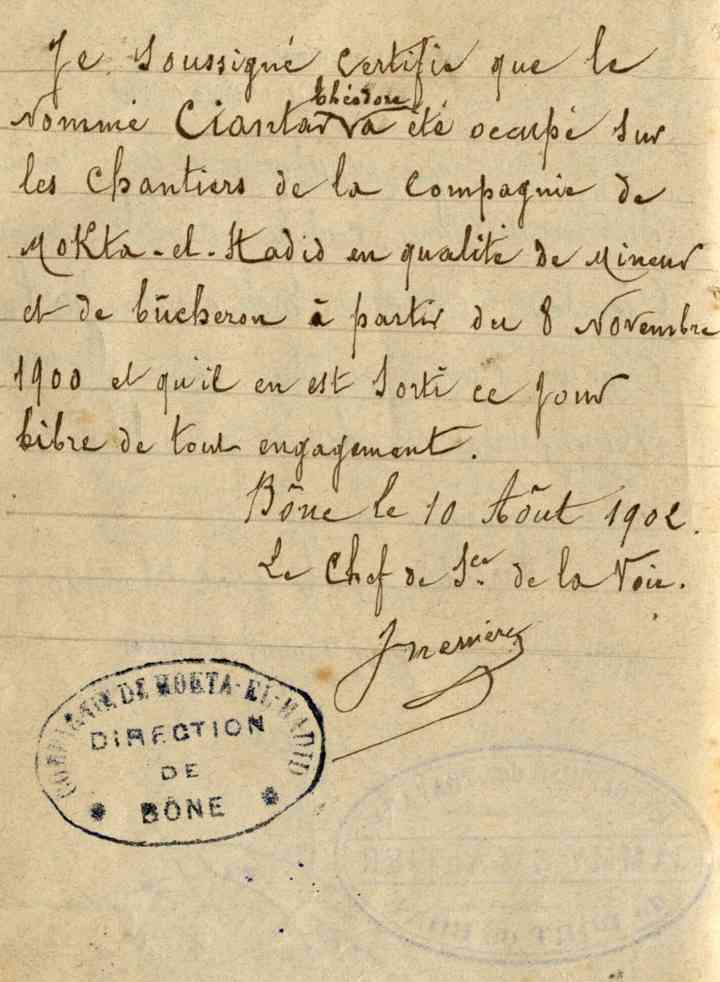 Je soussigné certifie que le
Théodore
nommé Ciantar a été occupé sur
les chantiers de la Compagnie de
Mokta-el-Hadid en qualité de mineur
et de bûcheron à partir du 8 Novembre
1900 et qu'il en est sorti ce jour
libre de tout engagement.
Bône le 10 Aôut 1902.
Le Chef de Sce. de la Voie.
COMPAGNIE DE MOKTA-EL-HADID
DIRECTION
DE
BÔNE